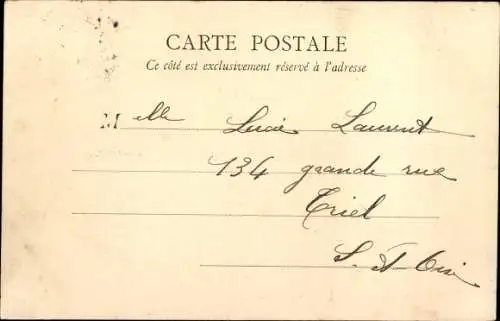 CARTE POSTALE
Ce côté est exclusivement réservé à l'adresse
Melle Lucie Laurent
134 grande rue
Triel
S. et Oise